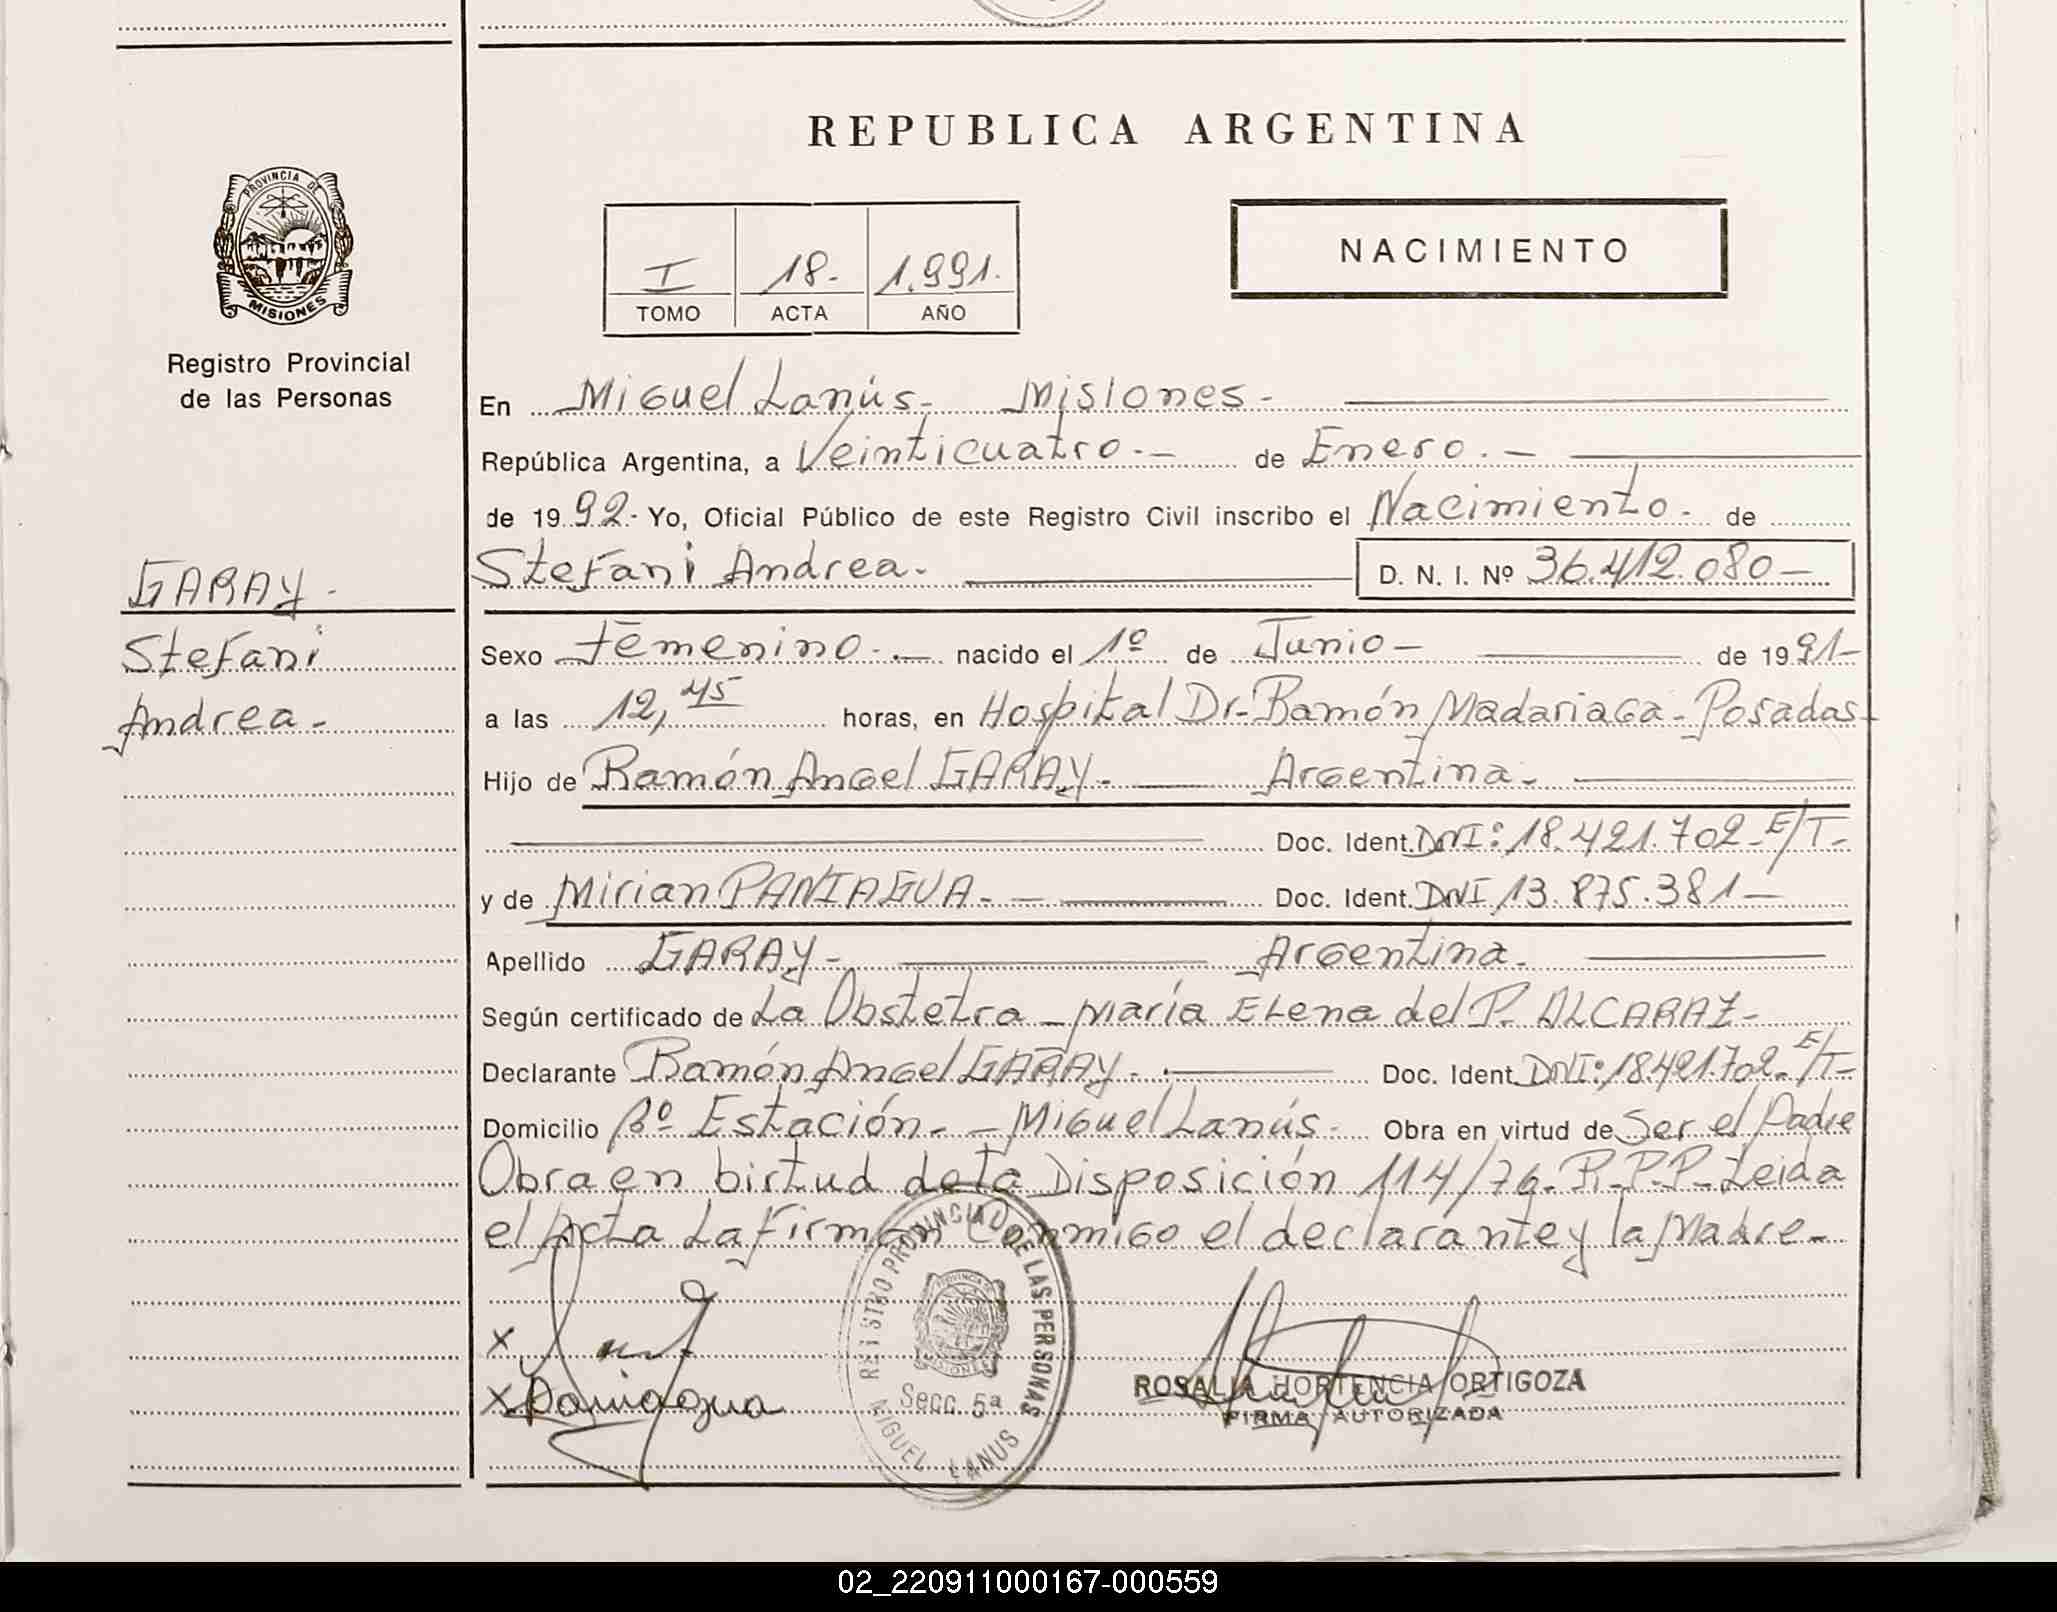 REPUBLICA ARGENTINA
PROVINCIA DE
MISIONES
Registro Provincial
de las Personas
NACIMIENTO
I 18- 1.991.
TOMO ACTA AÑO
En Miguel Lanús- Misiones-
República Argentina, a Veinticuatro.- de Enero.-
de 1992- Yo, Oficial Público de este Registro Civil inscribo el Nacimiento- de
Stefani Andrea- D. N. I. Nº 36.412.080-
GARAY-
Stefani
Andrea-
Sexo Femenino.- nacido el 1º de Junio- de 1991-
a las 12,45 horas, en Hospital Dr-Ramón Madariaga-Posadas-
Hijo de Ramón Angel GARAY- Argentina-
Doc. Ident. DNI: 18.421.702-E/T-
y de Mirian PANIAGUA- Doc. Ident. DNI 13.875.381-
Apellido GARAY- Argentina-
Según certificado de La Obstetra-María Elena del P. ALCARAZ-
Declarante Ramón Angel GARAY- Doc. Ident. DNI: 18.421.702-E/T-
Domicilio Bº Estación- -Miguel Lanús- Obra en virtud de Ser el Padre
Obra en birtud de la Disposición 114/76-R.P.P-Leida
el Acta La Firman Conmigo el declarante y la Madre-
X
X Paniagua
REGISTRO PROVINCIAL DE LAS PERSONAS
PROVINCIA DE
MISIONES
Secc. 5ª
MIGUEL LANUS
ROSALIA HORTENCIA ORTIGOZA
FIRMA AUTORIZADA
02_220911000167-000559